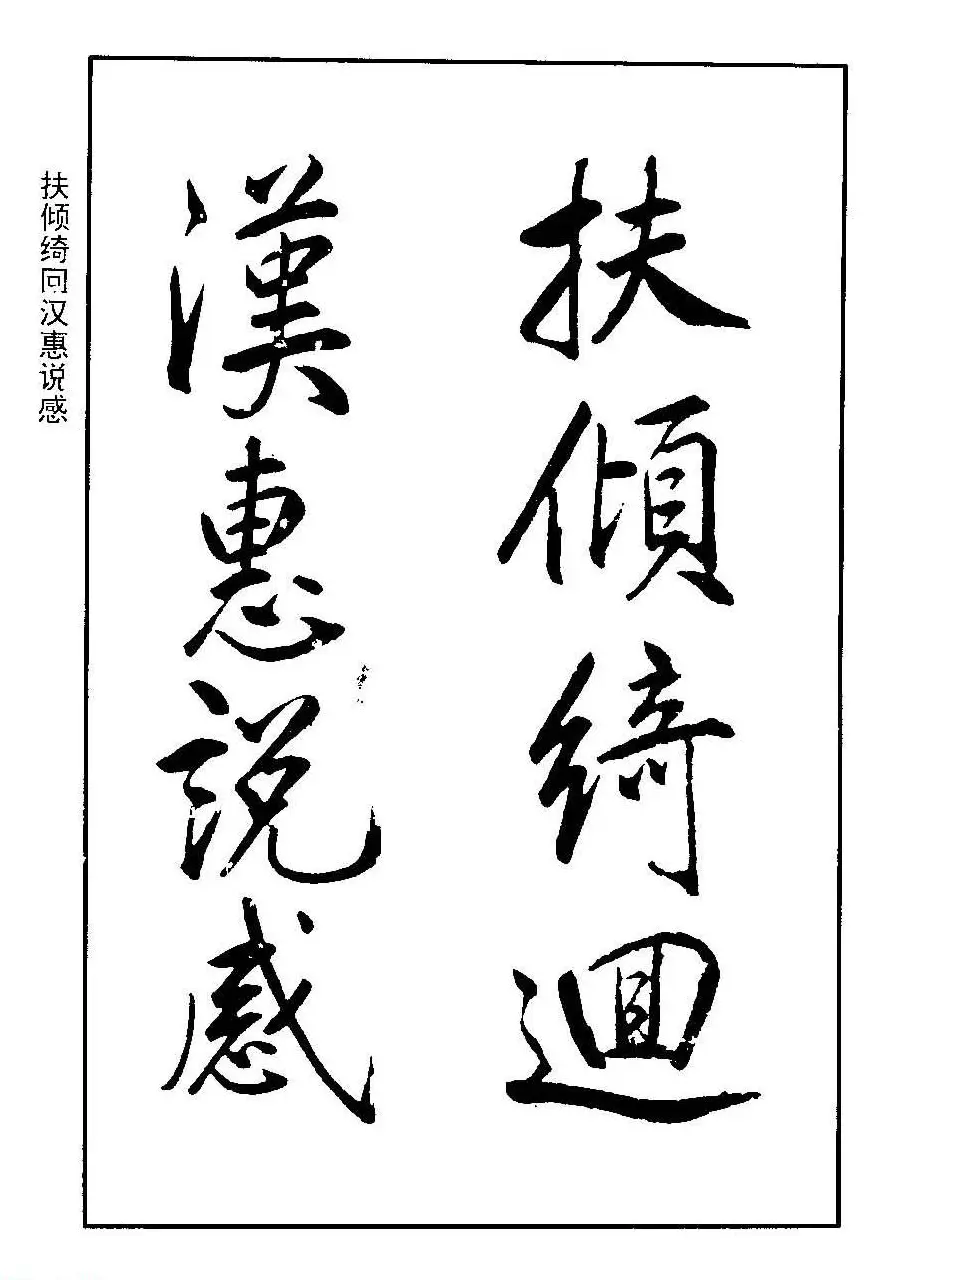 扶傾綺迴
漢惠説感
扶倾绮回汉惠说感